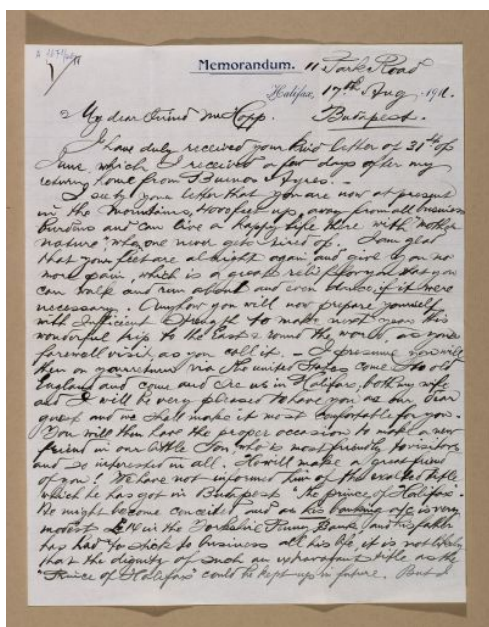 Memorandum. 11 Park Road
Halifax, 17th Aug. 191
My dear Friend Mr Hopp. Budapest.
I have duly received your kind letter of 30th of
June, which I received a few days after my
returning home from Buenos Ayres. -
I see by your letter that you are now at present
in the Mountains, 4000 feet up, away from all business
burdens and can live a happy life there with "mother
nature", who one never gets tired of. I am glad
that your feet are alright again and give you no
more pain, which is a great relief for you that you
can walk and run about and even dance, if it were
necessary. Anyhow you will now prepare yourself
with sufficient strength to make next year this
wonderful trip to the East & round the world, as your
farewell visit, as you call it. - I presume you will
then on your return via the united States come to old
England and come and see us in Halifax, both my wife
and I will be very pleased to have you as our dear
guest and we shall make it most comfortable for you.
You will then have the proper occasion to make a new
friend in our little Son, who is most friendly to visitors
and so interested in all. He will make a great friend
of you! We have not informed him of the exalted title,
which he has got in Budapest "the prince of Halifax".
He might become conceited and as his banking a/c is very
modest £ in the Yorkshire Penny Bank, and his father
has had to stick to business all his life, it is not likely
that the dignity of such an extravagant title as the
"Prince of Halifax" could be kept up in future. But I